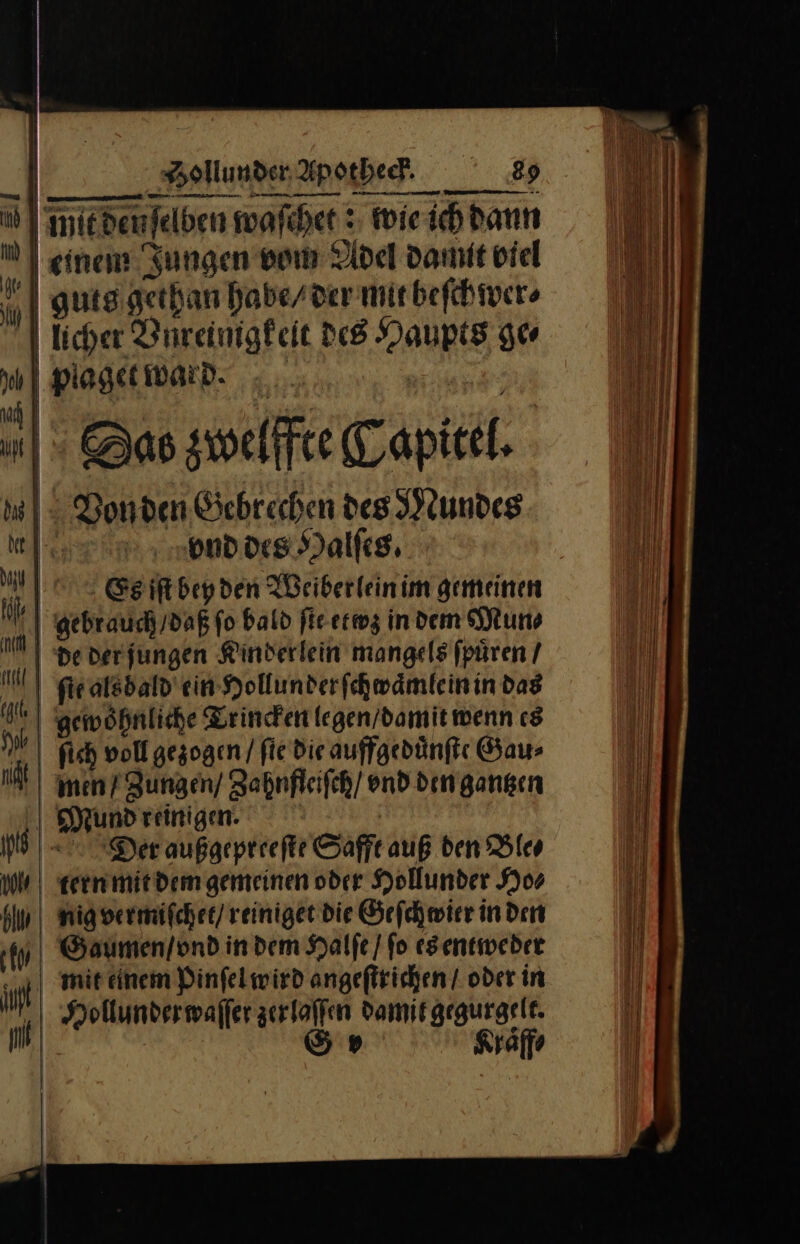 Hollunder Apotheck. 89
mit denſelben waſchet: wie ich dann
einem Jungen vom Adel damit viel
guts gethan habe/ der mit beſchwer⸗
licher Vnreinigkeit des Haupts ge⸗
plaget ward.
Das zwelffte Capitel.
Von den Gebrechen des Mundes
vnd des Halſes.
Es iſt bey den Weiberlein im gemeinen
gebrauch/ daß ſo bald ſie etwz in dem Mun⸗
de der jungen Kinderlein mangels ſpuͤren/
ſie alsbald ein Hollunderſchwaͤmlein in das
gewoͤhnliche Trincken legen/ damit wenn es
ſich voll gezogen/ ſie die auffgeduͤnſte Gau⸗
men/ Zungen/ Zahnfleiſch/ vnd den gantzen
Mund reinigen.
Der außgepreeſte Safft auß den Ble⸗
tern mit dem gemeinen oder Hollunder Ho⸗
nig vermiſchet/ reiniget die Geſchwier in den
Gaumen/ vnd in dem Halſe/ ſo es entweder
mit einem Pinſel wird angeſtrichen/ oder in
Hollunderwaſſer zerlaſſen damit gegurgelt.
G v Kraͤff⸗